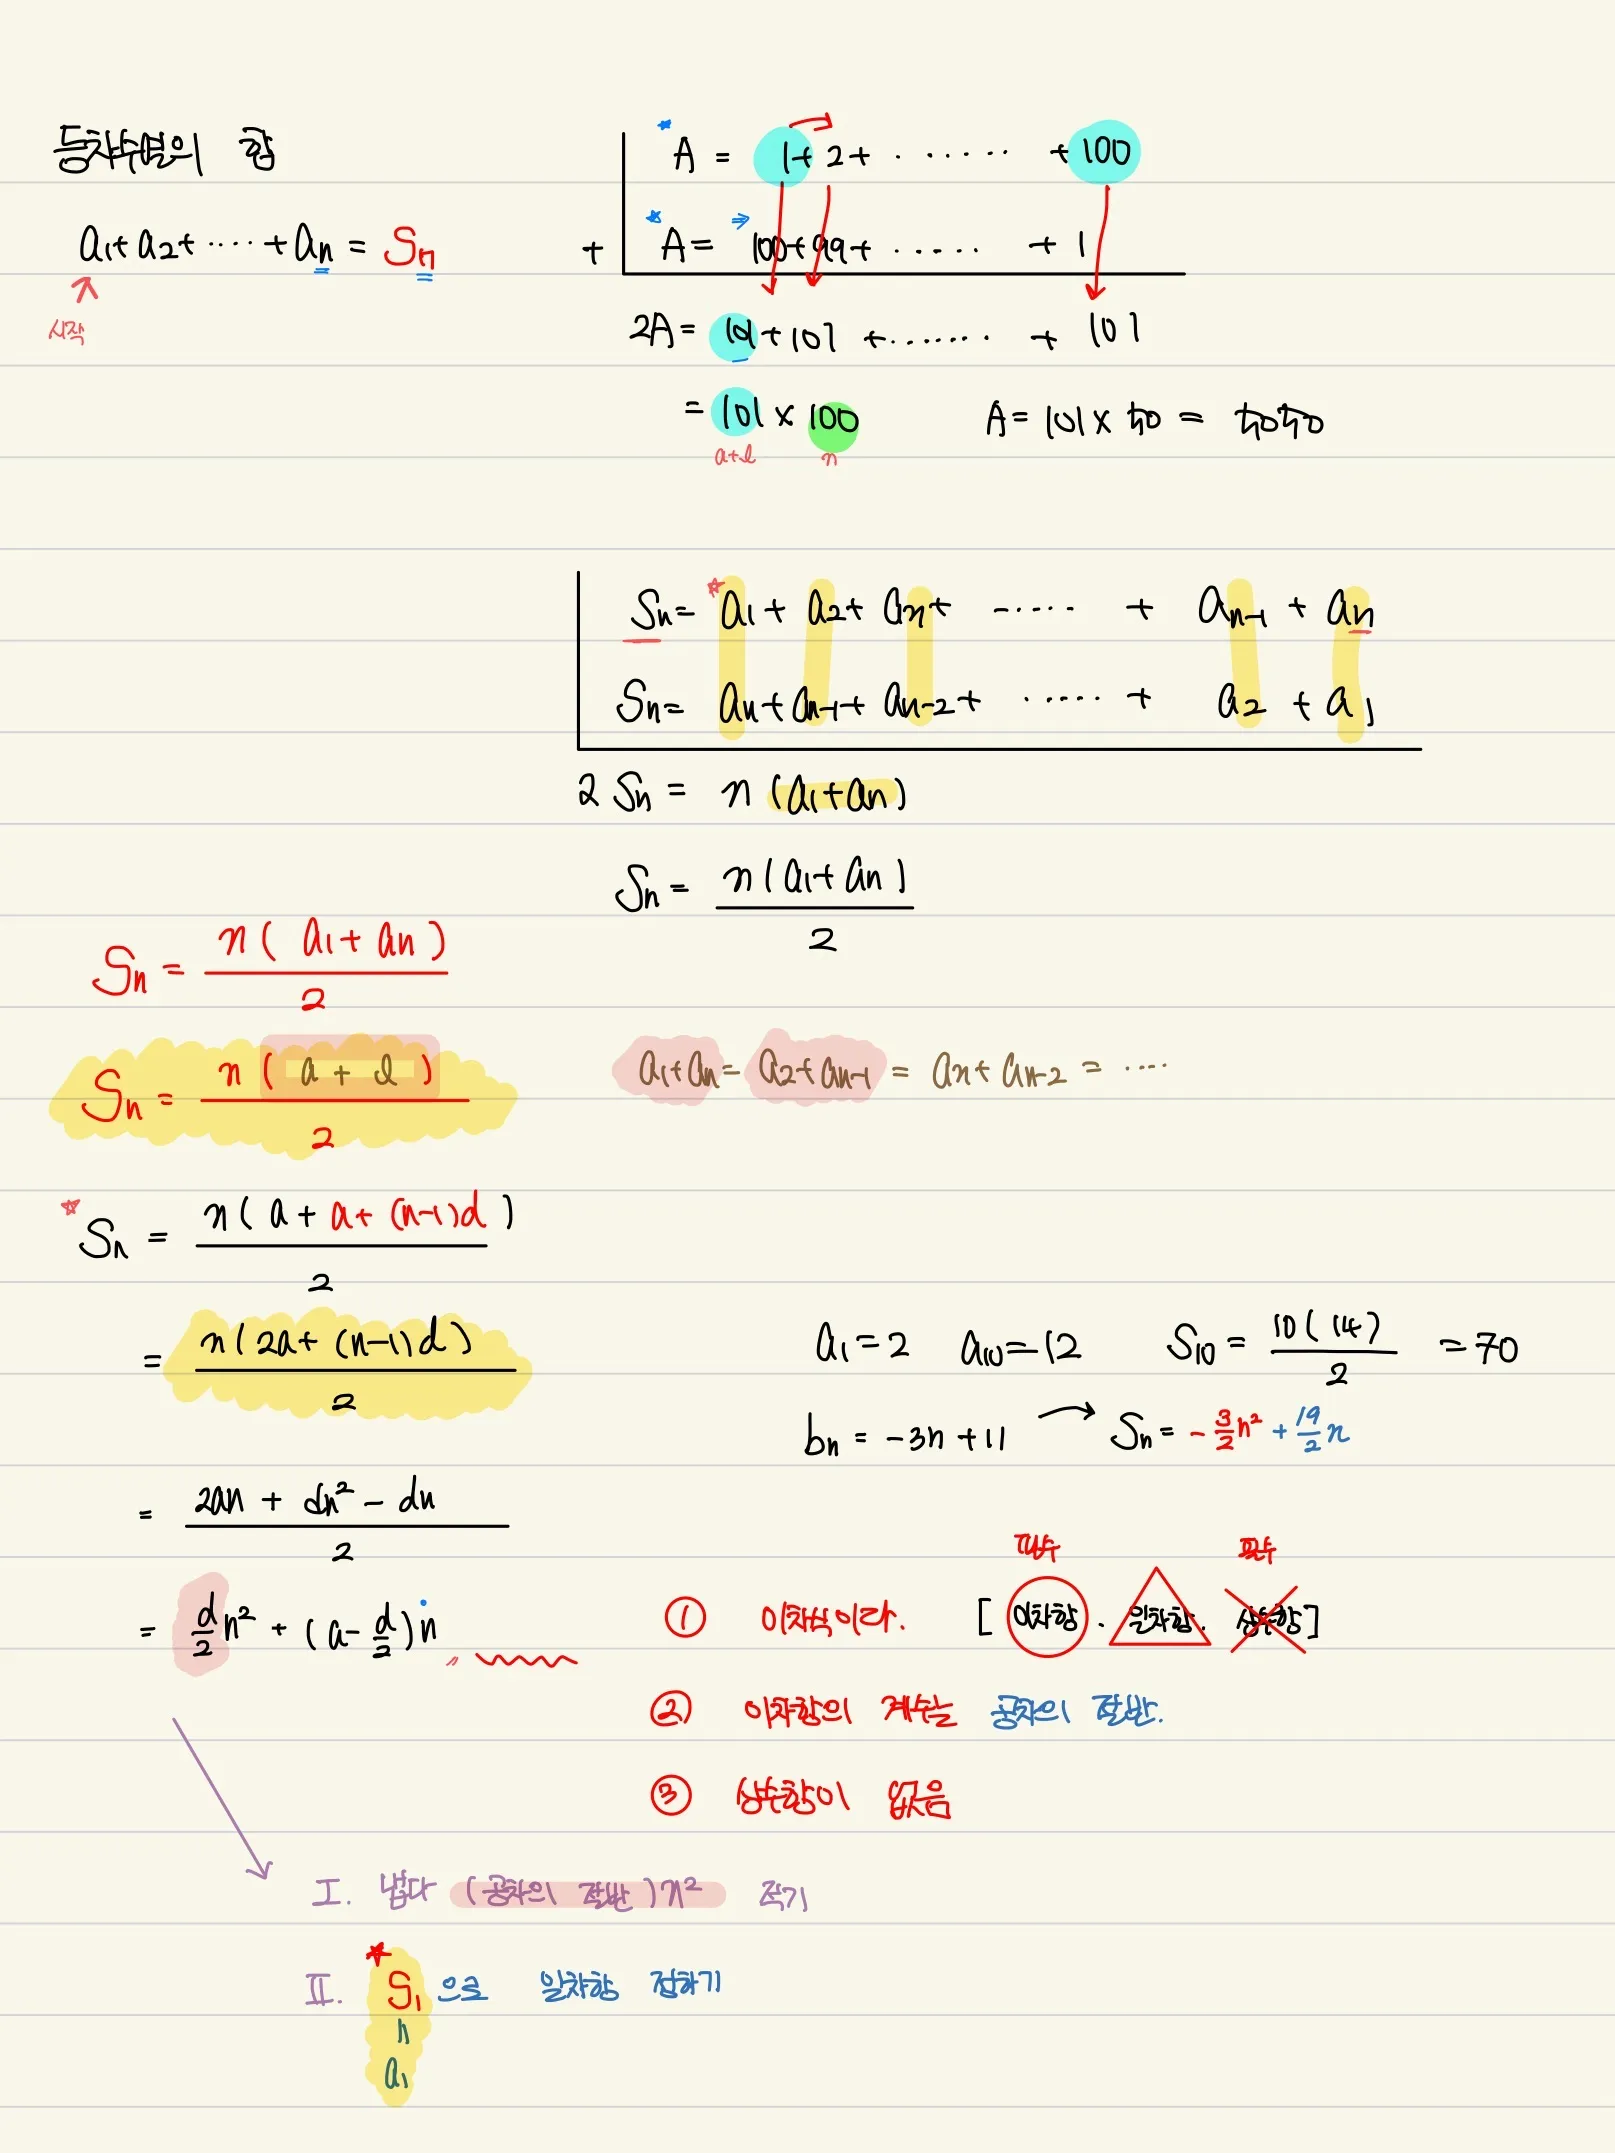 등차수열의 합
a₁+a₂+·····+aₙ = Sₙ
시작
A = 1+2+·······+100
+ A = 100+99+······+1
2A = 101+101+·······+101
= 101×100
a+l n
A = 101×50 = 5050
Sₙ = a₁+a₂+a₃+·····+aₙ₋₁+aₙ
Sₙ = aₙ+aₙ₋₁+aₙ₋₂+·····+a₂+a₁
2Sₙ = n(a₁+aₙ)
Sₙ = n(a₁+aₙ)/2
Sₙ = n(a₁+aₙ)/2
Sₙ = n(a+l)/2
a₁+aₙ = a₂+aₙ₋₁ = a₃+aₙ₋₂ = ····
Sₙ = n(a+a+(n-1)d)/2
= n(2a+(n-1)d)/2
a₁=2 a₁₀=12 S₁₀ = 10(14)/2 = 70
bₙ = -3n+11 → Sₙ = -3/2n²+19/2n
= 2an+dn²-dn/2
= d/2n²+(a-d/2)n
① 이차식이다. [이차항. 일차항. 상수항]
② 이차항의 계수는 공차의 절반.
③ 상수항이 없음
Ⅰ. 냅다 (공차의 절반)n² 적기
Ⅱ. S₁으로 일차항 정하기
a₁